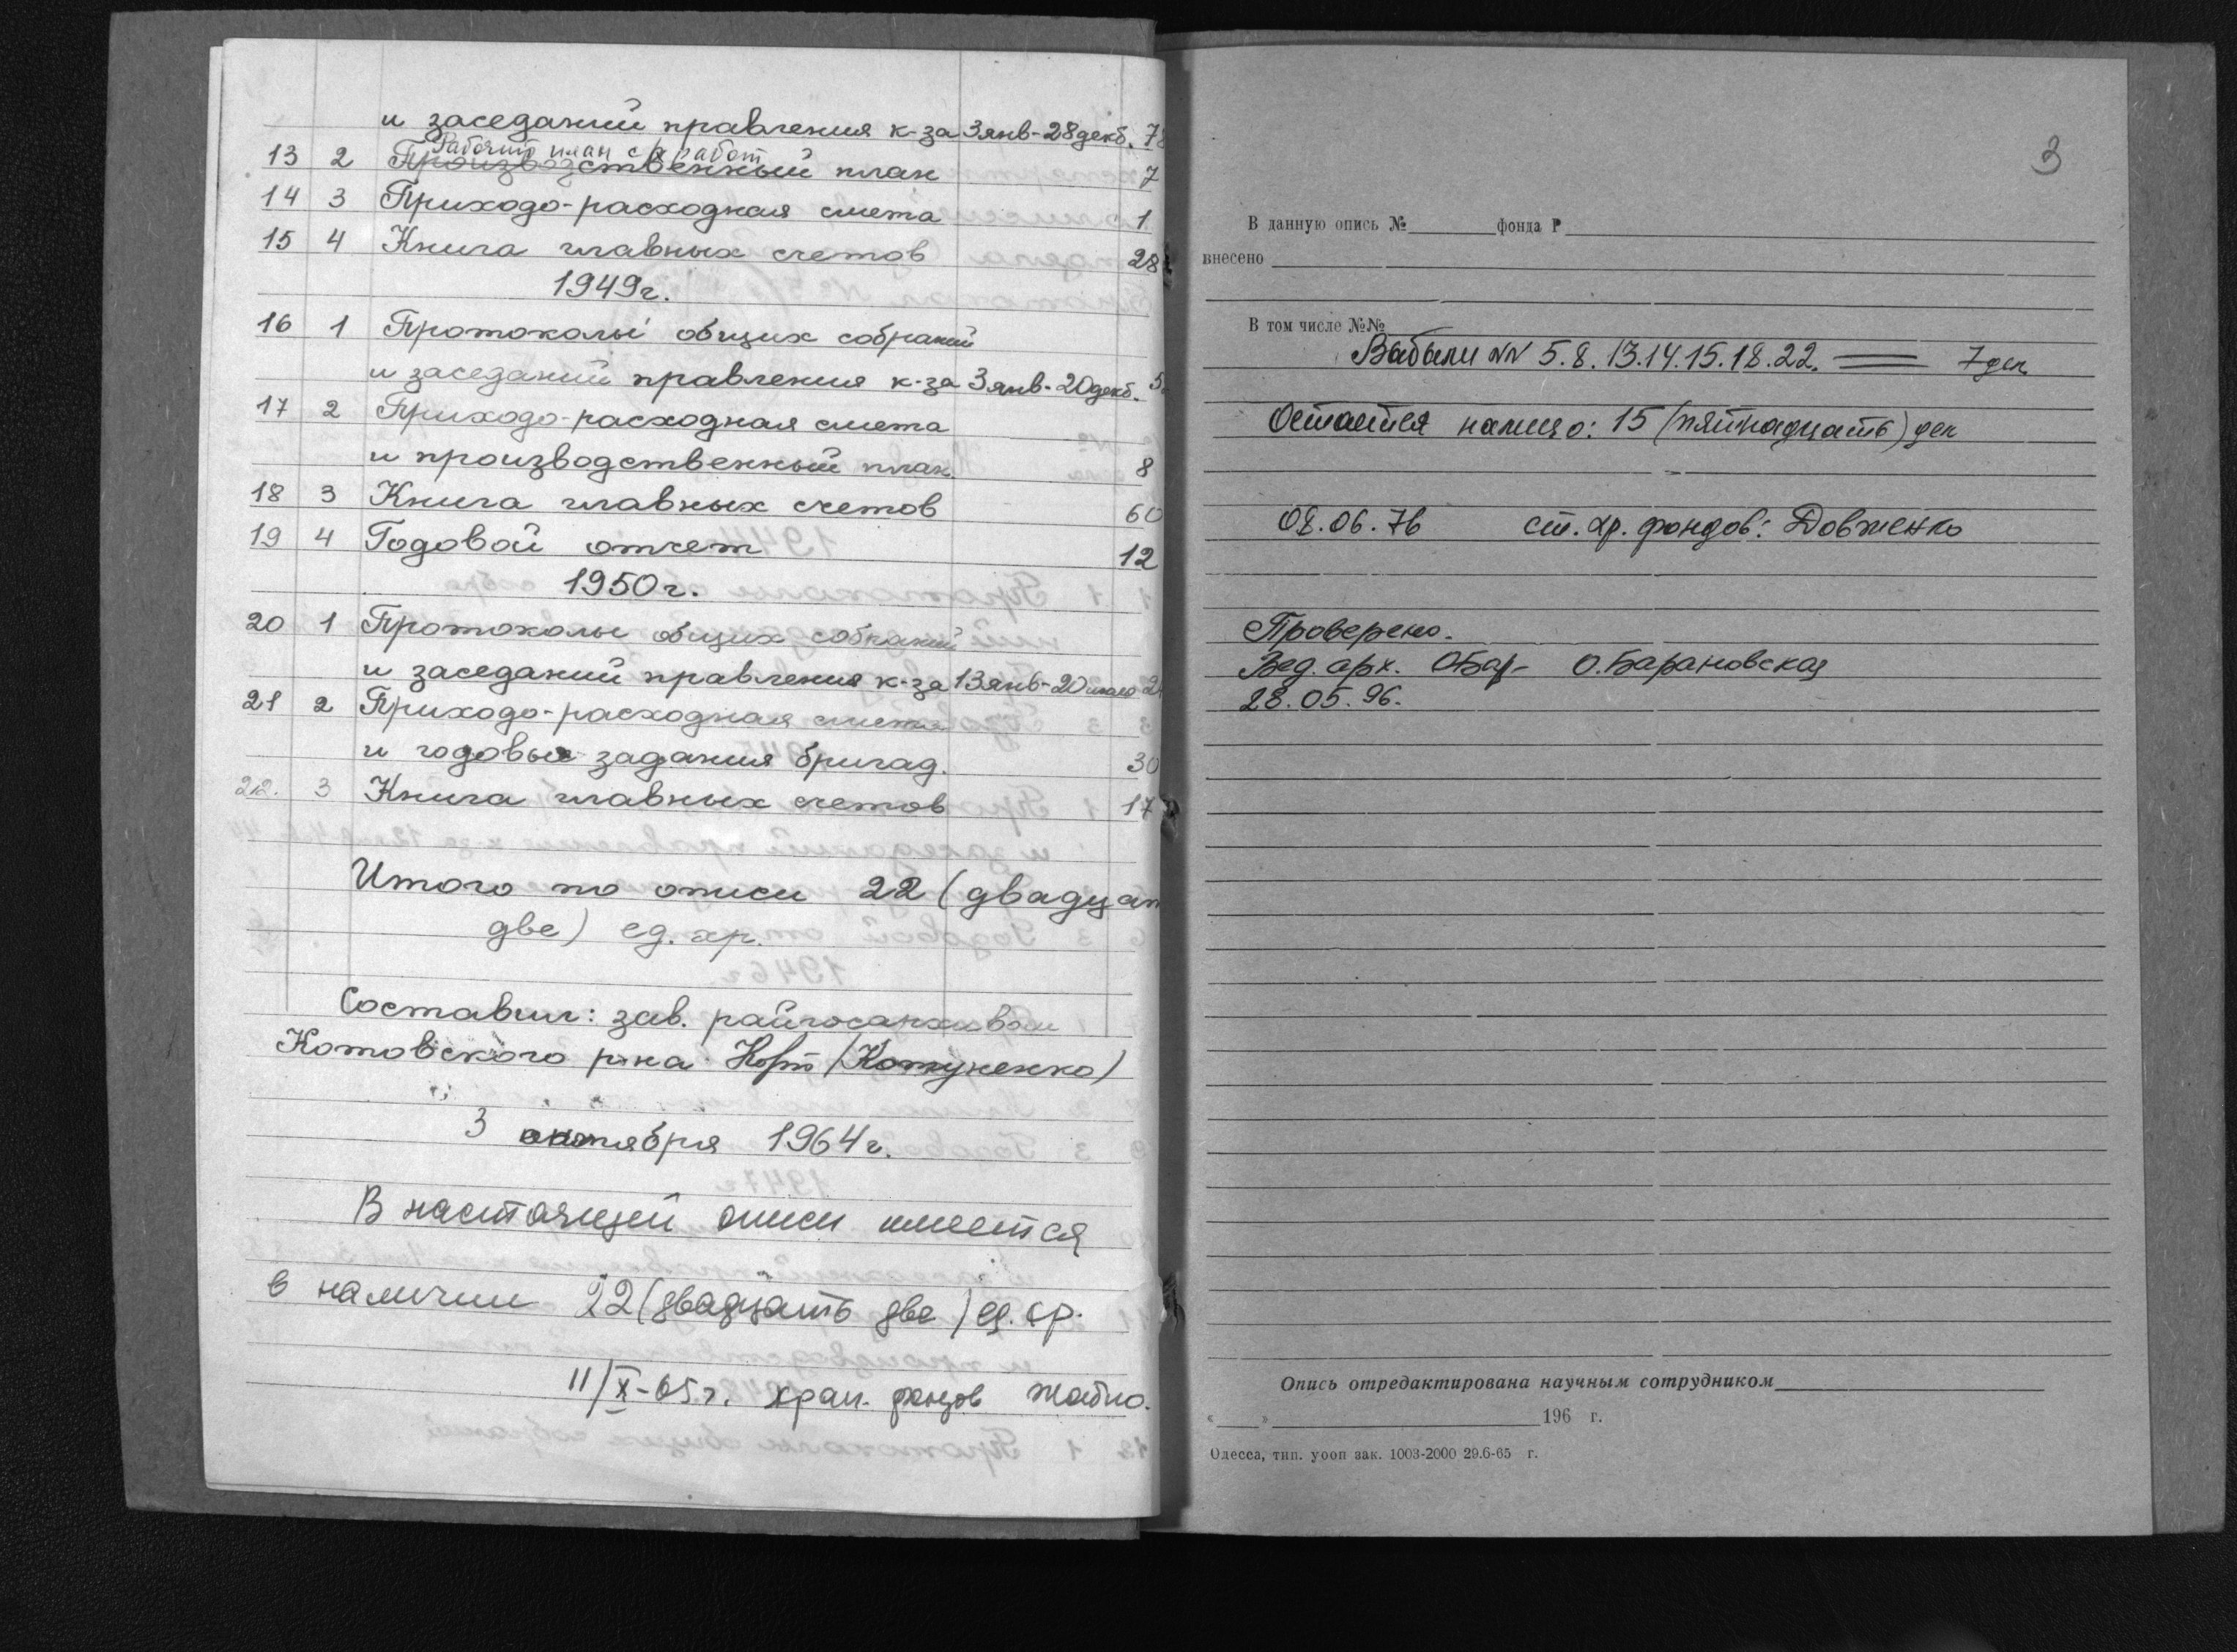 и заседаний правления к-за 3 янв - 28 декб. 78
Рабочий план с/х работ
13 2 Производственный план 7
14 3 Приходо-расходная смета 1
15 4 Книга главных счетов 28
1949г.
16 1 Протоколы общих собраний
и заседаний правления к-за 3 янв - 20 декб.
17 2 Приходо-расходная смета
и производственный план. 8
18 3 Книга главных счетов 60
19 4 Годовой отчет 12
1950г.
20 1 Протоколы общих собраний
и заседаний правления к-за 13 янв - 20
21 2 Приходо-расходная смета
и годовые задания бригад. 30
22. 3 Книга главных счетов 17
Итого по описи 22 (двадцат
две) ед. хр.
Составил: зав. райгосархивом
Котовского р-на (Котуненко)
3 октября 1964г.
В настоящей описи имеется
в наличии 22 (двадцать две) ед. хр.
11/X-65г. хран. фондов
3
В данную опись № фонда Р
внесено
В том числе №№
Выбыли NN 5. 8. 13. 14. 15. 18. 22. 7 дел
Остается налицо: 15 (пятнадцать) дел
08.06.76 ст. хр. фондов: Довженко
Проверено.
Вед. арх. О.Барановская
28.05.96.
Опись отредактирована научным сотрудником
« » 196 г.
Одесса, тип. уооп зак. 1003-2000 29.6-65 г.